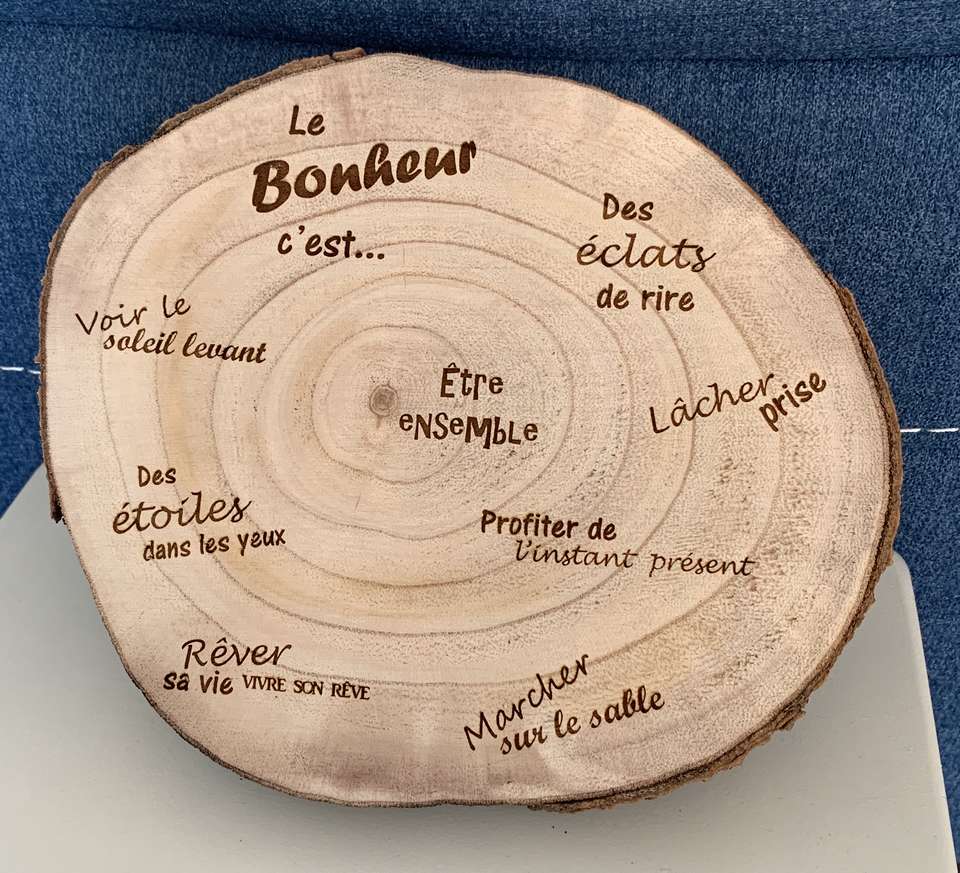 Le
Bonheur
c'est...
Des
éclats
de rire
Voir le
soleil levant
Être
ensemble
Lâcher
prise
Des
étoiles
dans les yeux
Profiter de
l'instant présent
Rêver
sa vie VIVRE SON RÊVE
Marcher
sur le sable